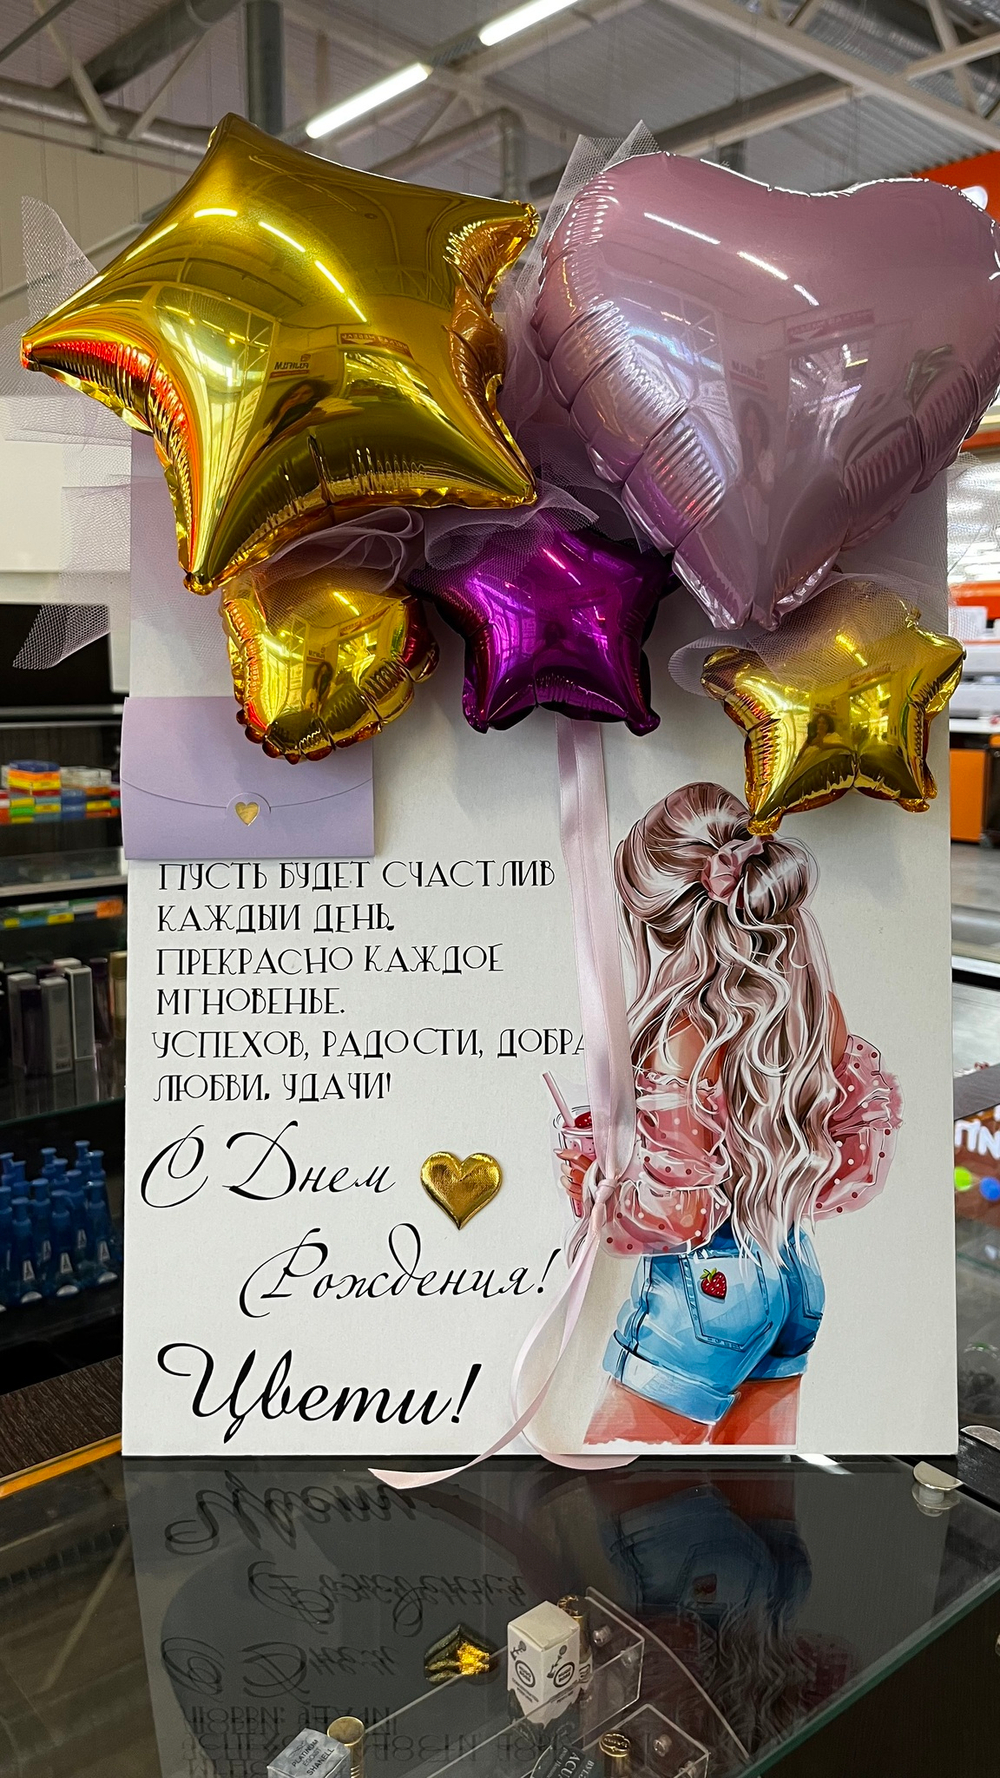 ПУСТЬ БУДЕТ СЧАСТЛИВ
КАЖДЫЙ ДЕНЬ.
ПРЕКРАСНО КАЖДОЕ
МГНОВЕНЬЕ.
УСПЕХОВ, РАДОСТИ, ДОБРА
ЛЮБВИ, УДАЧИ!
С Днем
Рождения!
Цвети!
PLATINUM
SHANELL